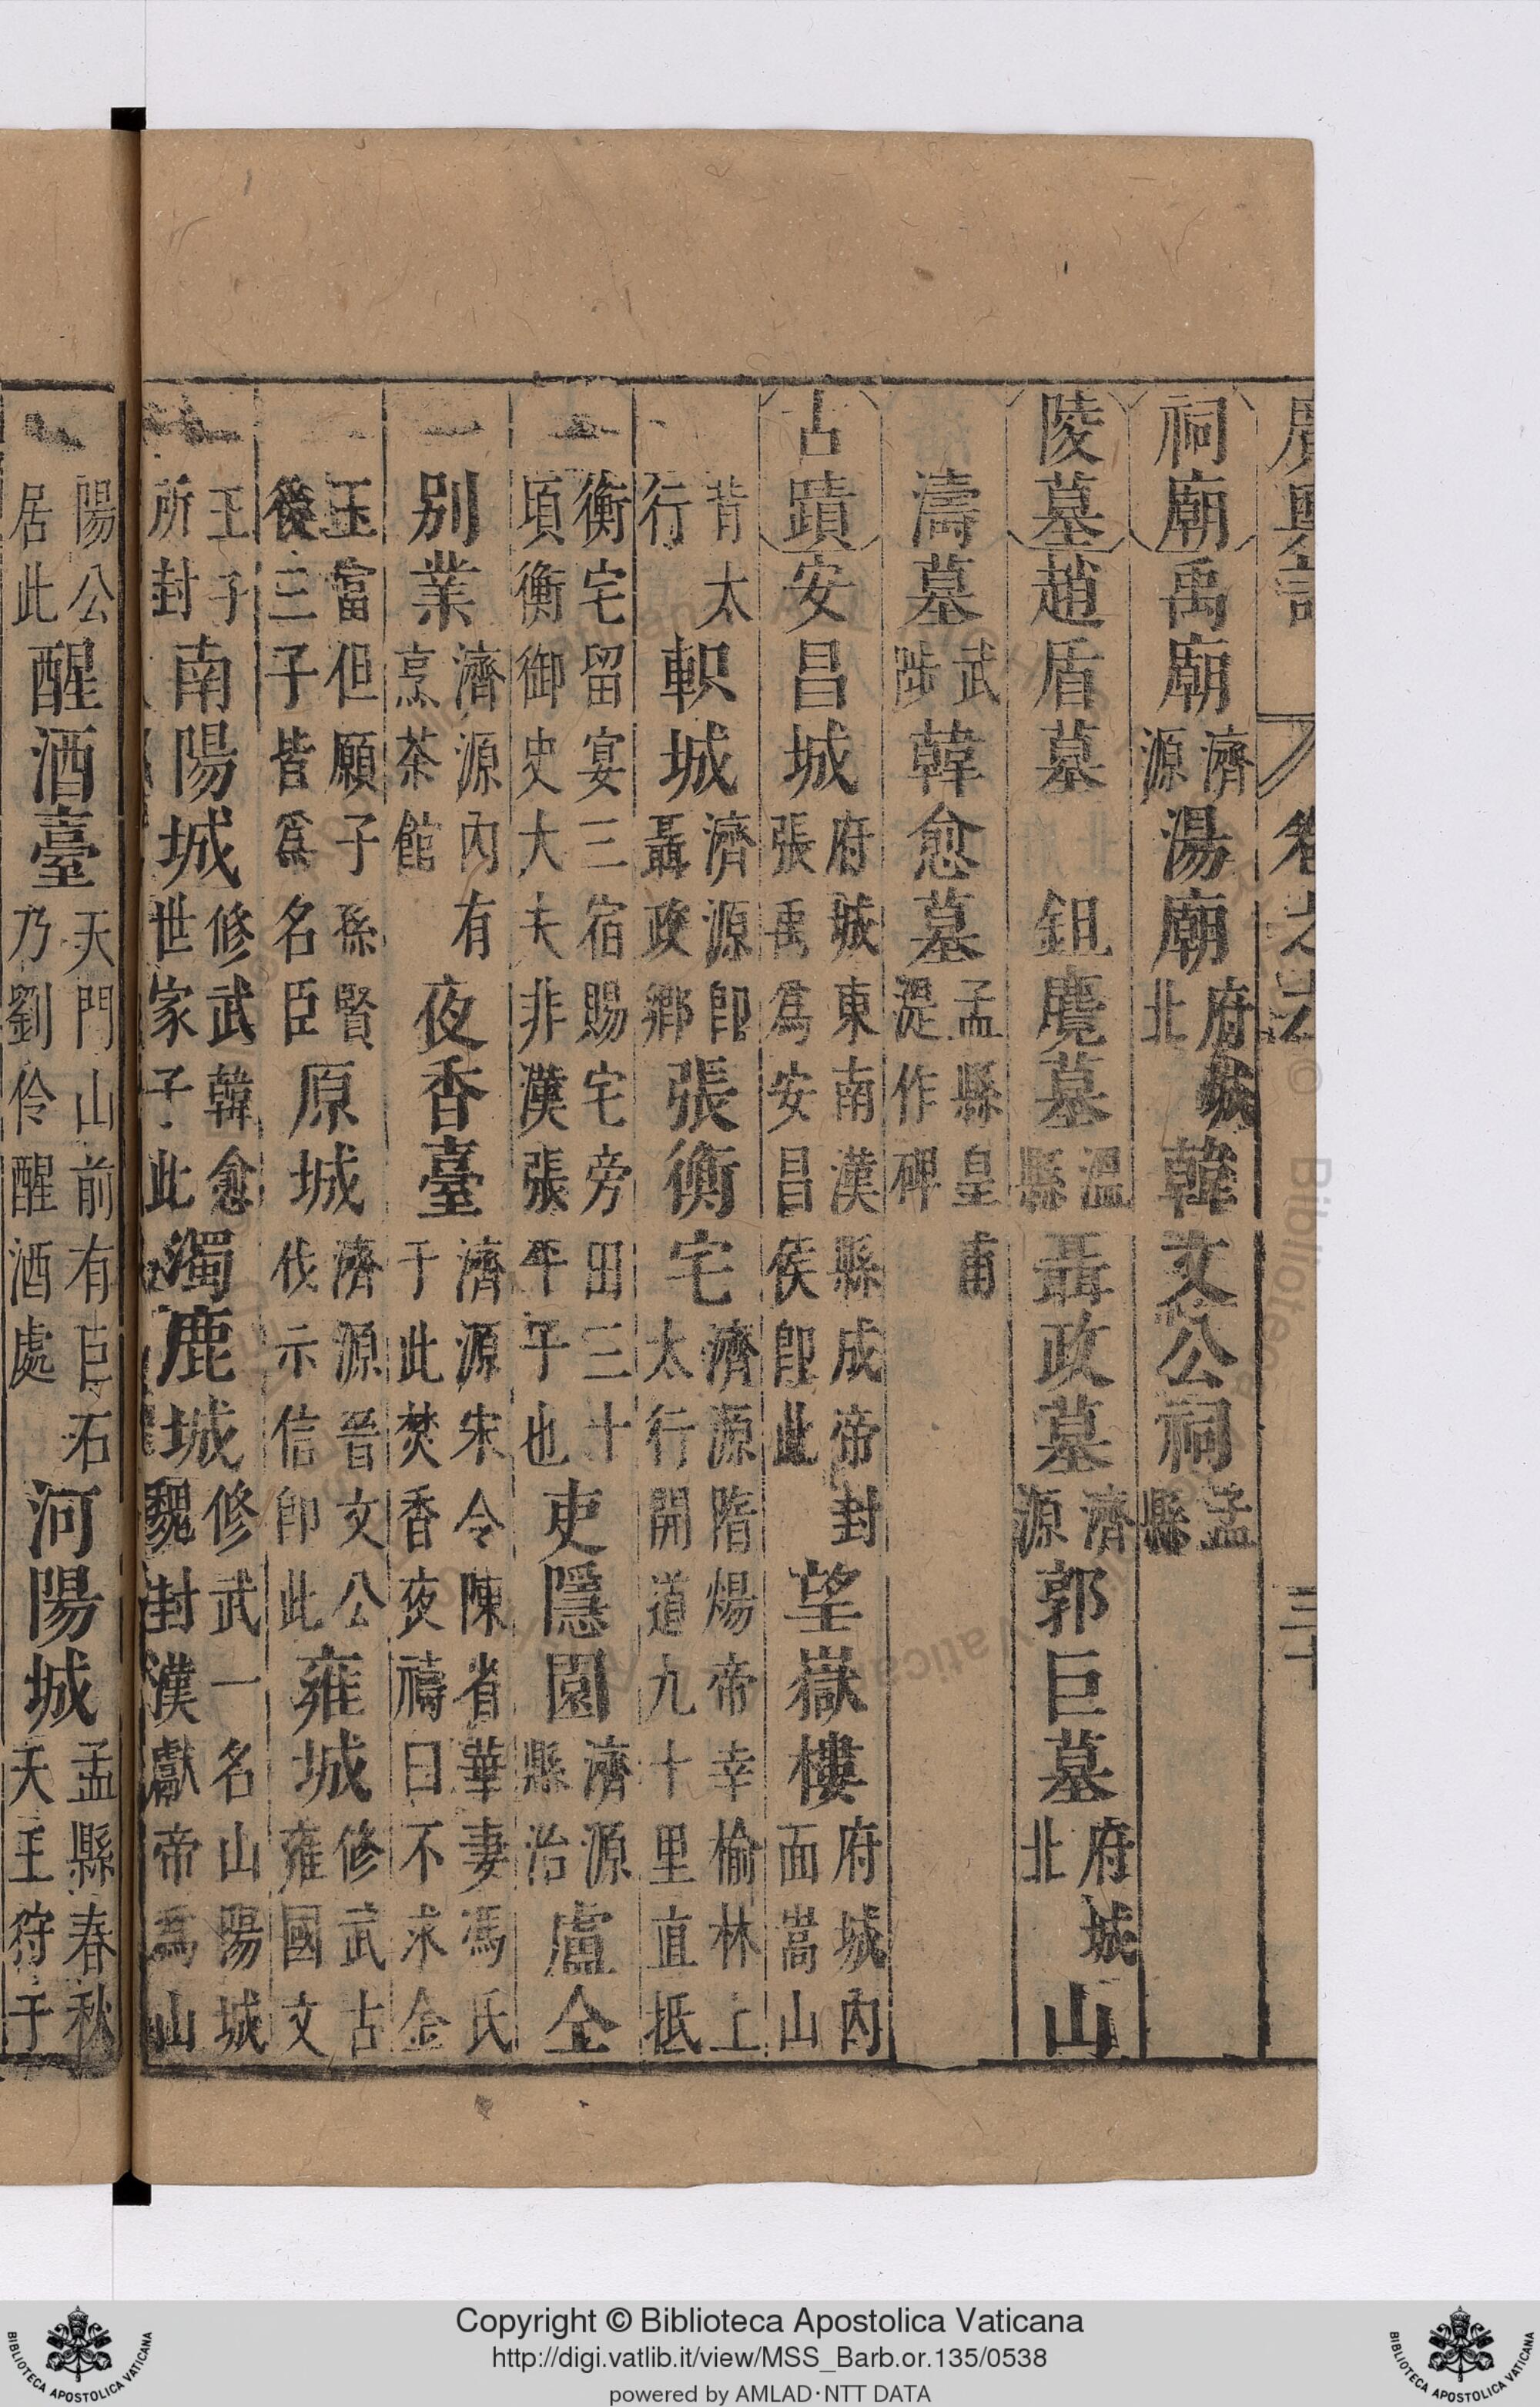 廣輿記 卷之六 三十
祠廟禹廟濟源湯廟府城北韓文公祠孟縣
陵墓趙盾墓 鉏麑墓溫縣聶政墓濟源郭巨墓府城北山
濤墓武陟韓愈墓孟縣皇甫湜作碑
古蹟安昌城府城東南漢縣成帝封張禹爲安昌侯卽此望嶽樓府城內面嵩山
背太行軹城濟源卽聶政鄉張衡宅濟源隋煬帝幸榆林上太行開道九十里直抵
衡宅留宴三宿賜宅旁田三十頃衡御史大夫非漢張平子也吏隱園濟源縣治盧仝
別業濟源內有烹茶館夜香臺濟源宋令陳省華妻馮氏于此焚香夜禱曰不求金
玉富但願子孫賢後三子皆爲名臣原城濟源晉文公伐示信卽此雍城修武古雍國文
王子所封南陽城修武韓愈世家子此濁鹿城修武一名山陽城魏封漢獻帝爲山
陽公居此醒酒臺天門山前有巨石乃劉伶醒酒處河陽城孟縣春秋天王狩于
© Biblioteca Apostolica Vaticana
Copyright © Biblioteca Apostolica Vaticana
http://digi.vatlib.it/view/MSS_Barb.or.135/0538
powered by AMLAD·NTT DATA
BIBLIOTECA APOSTOLICA VATICANA
BIBLIOTECA APOSTOLICA VATICANA